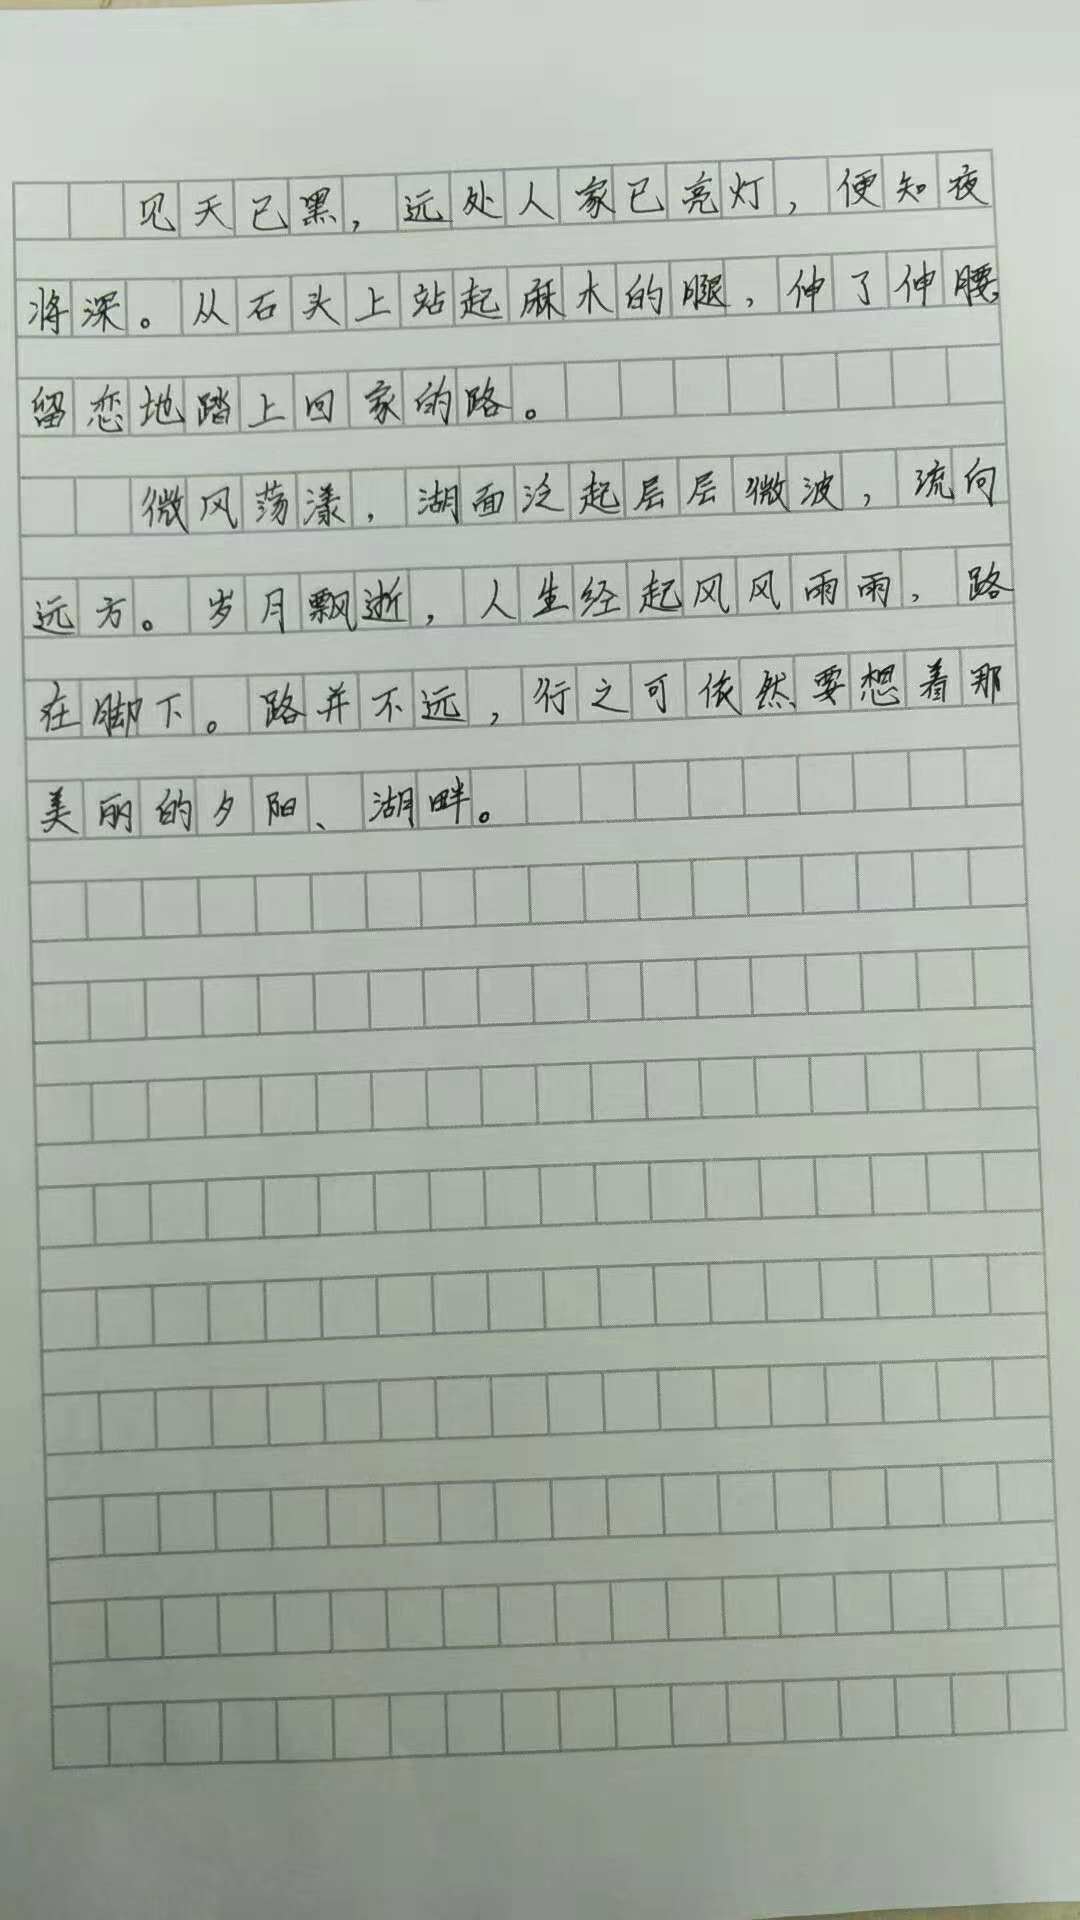 见天已黑，远处人家已亮灯，便知夜
将深。从石头上站起麻木的腿，伸了伸腰，
留恋地踏上回家的路。
微风荡漾，湖面泛起层层微波，流向
远方。岁月飘逝，人生经起风风雨雨，路
在脚下。路并不远，行之可依然要想着那
美丽的夕阳、湖畔。